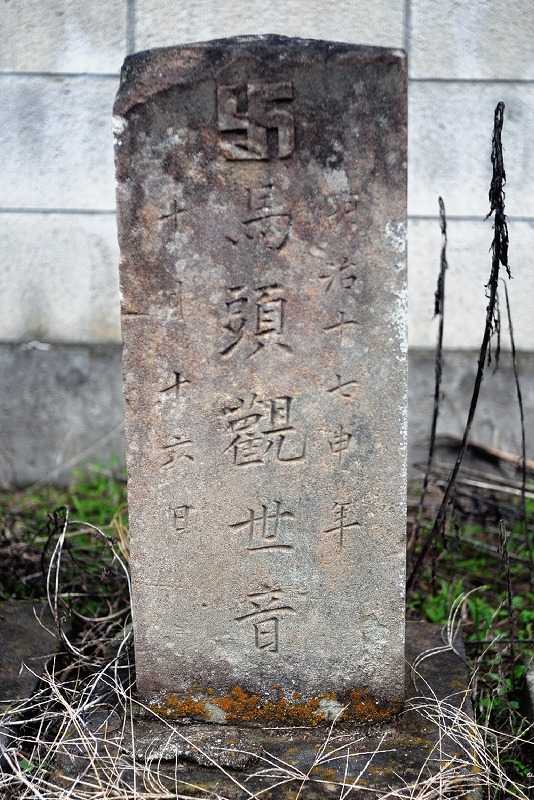 明治十七申年
卍
馬頭觀世音
十月十六日